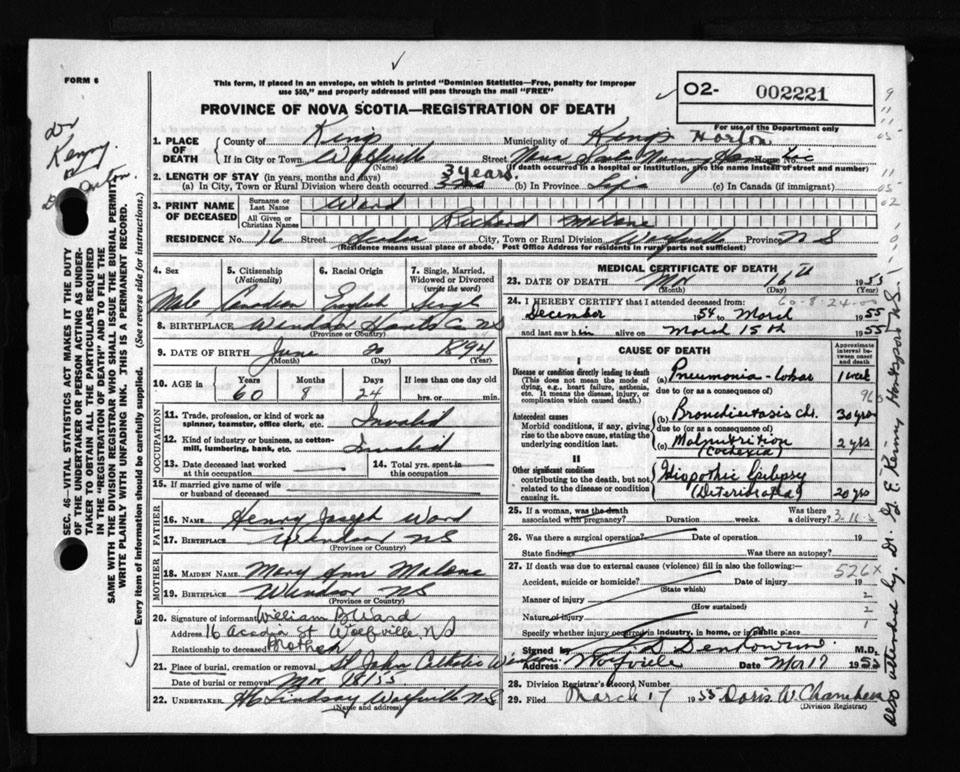 FORM 6
This form, if placed in an envelope, on which is printed "Dominion Statistics—Free, penalty for improper
use $50," and properly addressed will pass through the mail "FREE"
PROVINCE OF NOVA SCOTIA—REGISTRATION OF DEATH
02- 002221
For use of the Department only
Dr Kenny
SEC. 46—VITAL STATISTICS ACT MAKES IT THE DUTY
OF THE UNDERTAKER OR PERSON ACTING AS UNDER-
TAKER TO OBTAIN ALL THE PARTICULARS REQUIRED
IN THE "REGISTRATION OF DEATH" AND TO FILE THE
SAME WITH THE DIVISION REGISTRAR WHO SHALL ISSUE THE BURIAL PERMIT.
WRITE PLAINLY WITH UNFADING INK. THIS IS A PERMANENT RECORD.
Every item of information should be carefully supplied. (See reverse side for instructions.)
1. PLACE OF DEATH County of Kings Municipality of Kings Horton
If in City or Town Wolfville Street House No.
(Name) (If death occurred in a hospital or institution, give its name instead of street and number)
2. LENGTH OF STAY (in years, months and days) 3 years
(a) In City, Town or Rural Division where death occurred (b) In Province Life (c) In Canada (if immigrant)
3. PRINT NAME OF DECEASED Surname or Last Name Ward
All Given or Christian Names Richard Malone
RESIDENCE No. 16 Street Acadia City, Town or Rural Division Wolfville Province NS
(Residence means usual place of abode. Post Office Address for residents in rural parts not sufficient)
4. Sex 5. Citizenship (Nationality) 6. Racial Origin 7. Single, Married, Widowed or Divorced (write the word)
Male Canadian English Single
8. BIRTHPLACE Windsor Hants Co NS
(Province or Country)
9. DATE OF BIRTH June 20 1894
(Month) (Day) (Year)
10. AGE in Years Months Days If less than one day old
60 8 24 hrs. or min.
OCCUPATION
11. Trade, profession, or kind of work as spinner, teamster, office clerk, etc. Invalid
12. Kind of industry or business, as cotton-mill, lumbering, bank, etc. Invalid
13. Date deceased last worked at this occupation 14. Total yrs. spent in this occupation
15. If married give name of wife or husband of deceased
FATHER
16. NAME Henry Joseph Ward
17. BIRTHPLACE Windsor NS
(Province or Country)
MOTHER
18. MAIDEN NAME Mary Ann Malone
19. BIRTHPLACE Windsor NS
(Province or Country)
20. Signature of informant William B Ward
Address 16 Acadia St Wolfville, NS
Relationship to deceased Brother
21. Place of burial, cremation or removal St John Catholic Windsor
Date of burial or removal Mar 18/55
22. UNDERTAKER H Lindsay Wolfville N.S.
(Name and address)
MEDICAL CERTIFICATE OF DEATH
23. DATE OF DEATH Mar 16th 1955
(Month) (Day) (Year)
60-8-24-00
24. I HEREBY CERTIFY that I attended deceased from
December 1954 to March 1955
and last saw him alive on March 15th 1955
CAUSE OF DEATH Approximate interval between onset and death
I
Disease or condition directly leading to death
(This does not mean the mode of dying, e.g., heart failure, asthenia, etc. It means the disease, injury, or complication which caused death.)
(a) Pneumonia - lobar 1 week
due to (or as a consequence of)
Antecedent causes
Morbid conditions, if any, giving rise to the above cause, stating the underlying condition last.
(b) Bronchiectasis ch. 30 yrs
due to (or as a consequence of)
(c) Malnutrition 2 yrs
(Cachexia)
II
Other significant conditions
contributing to the death, but not related to the disease or condition causing it.
Idiopathic Epilepsy
20 yrs
25. If a woman, was the death associated with pregnancy? Duration weeks. Was there a delivery?
26. Was there a surgical operation? Date of operation 19
State findings Was there an autopsy?
27. If death was due to external causes (violence) fill in also the following:— 526X
Accident, suicide or homicide? Date of injury 19
(State which)
Manner of injury
(How sustained)
Nature of injury
Specify whether injury occurred in industry, in home, or in public place
Signed by M.D.
Address Wolfville Date Mar 17 1955
28. Division Registrar's Record Number
29. Filed March 17 1955 Doris W. Chambers
(Division Registrar)
Also attended by Dr. G. E. Kenny N.S.